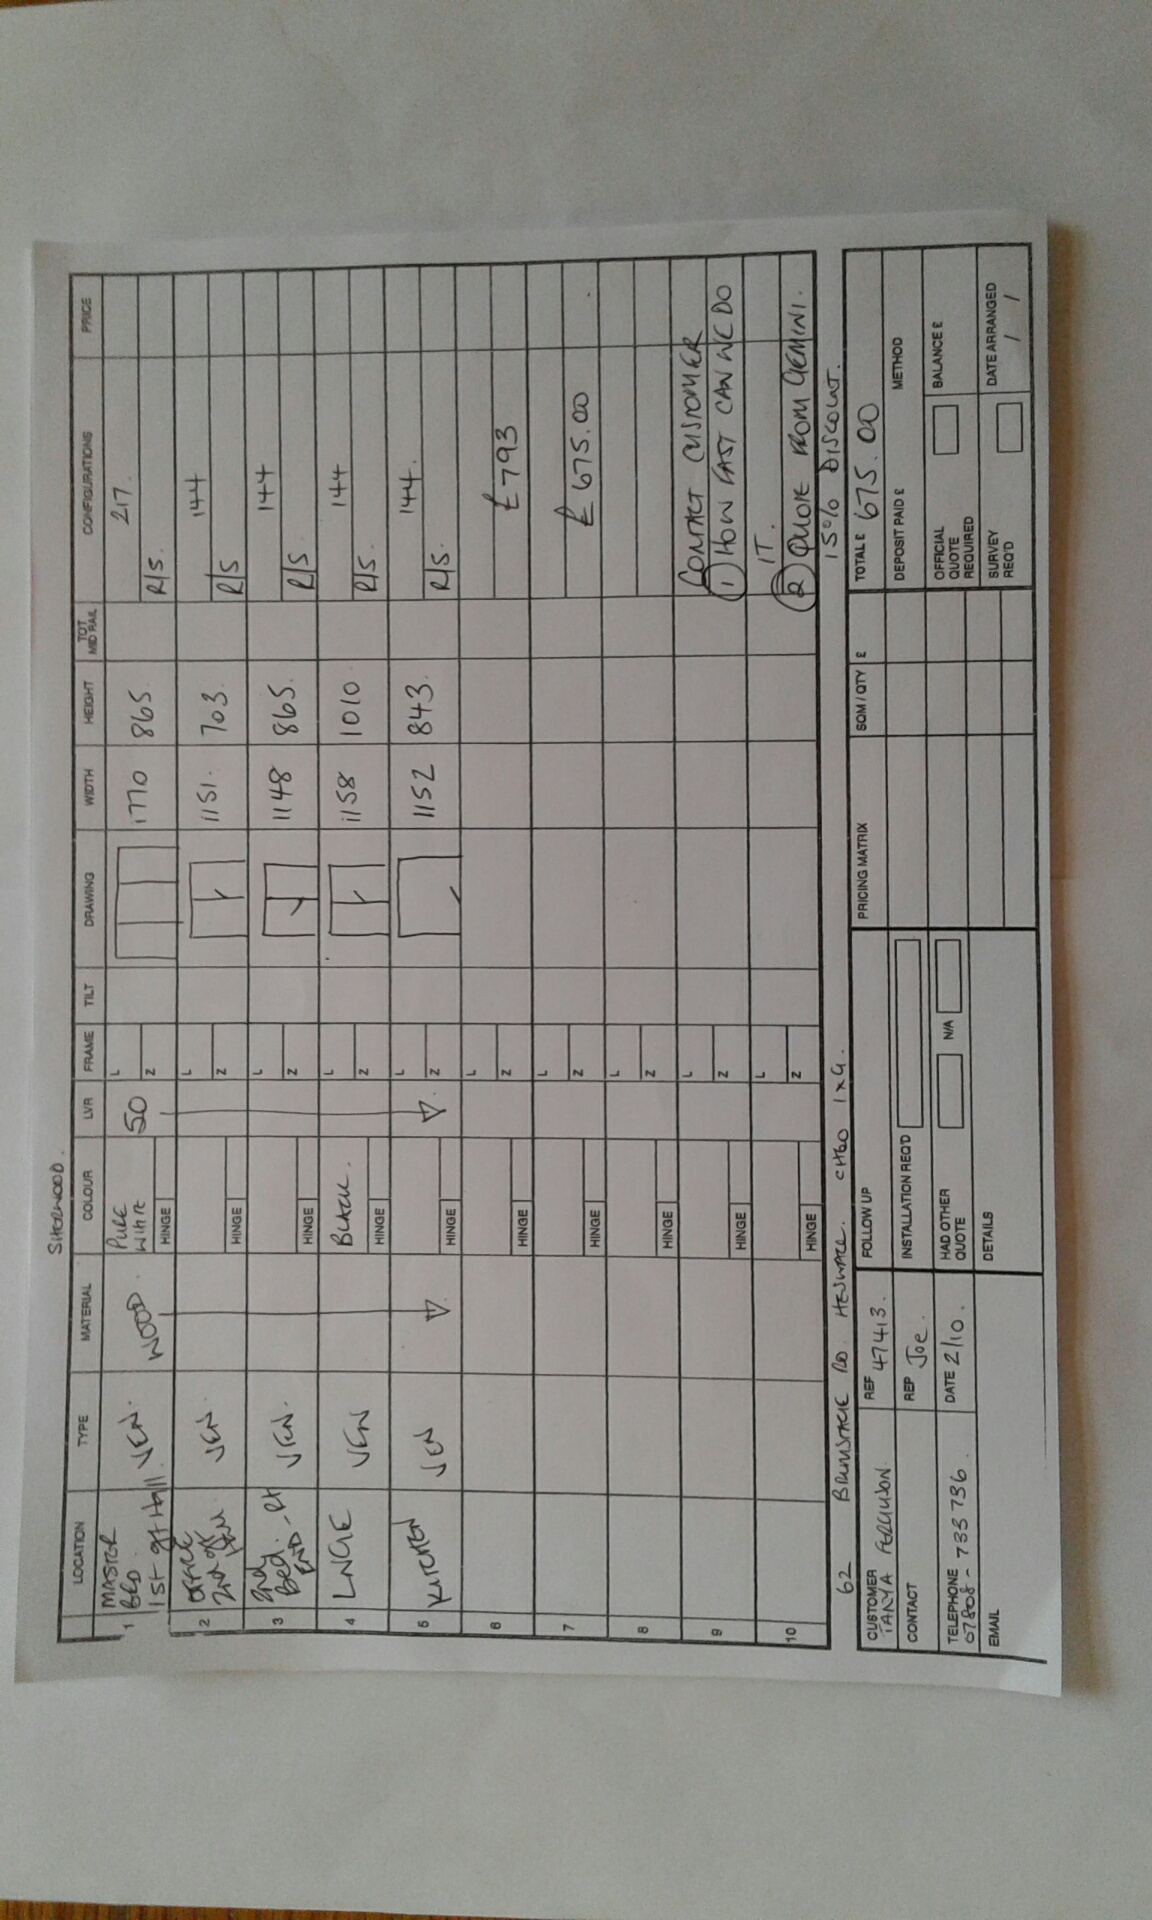 SHERWOOD.
LOCATION TYPE MATERIAL COLOUR LVR FRAME TILT DRAWING WIDTH HEIGHT TOT MID RAIL CONFIGURATIONS PRICE
1 MASTER BED. 1ST off Hall. VEN. WOOD. PURE WHITE HINGE 50 L Z 1770 865. 217. R/S.
2 OFFICE 2nd off HALL VEN. HINGE L Z 1151. 703. 144 R/S
3 2nd Bed. - Rt END VEN. HINGE L Z 1148 865. 144 R/S.
4 LNGE VEN BLACK. HINGE L Z 1158 1010 144 R/S.
5 KITCHEN VEN HINGE L Z 1152 843. 144. R/S.
6 HINGE L Z £793
7 HINGE L Z £675.00
8 HINGE L Z
9 HINGE L Z CONTACT CUSTOMER
① HOW FAST CAN WE DO
10 HINGE L Z IT.
② QUOTE FROM GEMINI.
15% DISCOUNT.
62 RD. HESWALL. CH60 1XG.
CUSTOMER TANYA FERGUSON. REF 47413. FOLLOW UP PRICING MATRIX SQM / QTY £ TOTAL £ 675.00
CONTACT REP Joe. INSTALLATION REQ'D DEPOSIT PAID £ METHOD
TELEPHONE 07808-733736. DATE 2/10. HAD OTHER QUOTE N/A OFFICIAL QUOTE REQUIRED BALANCE £
EMAIL DETAILS SURVEY REQ'D DATE ARRANGED / /